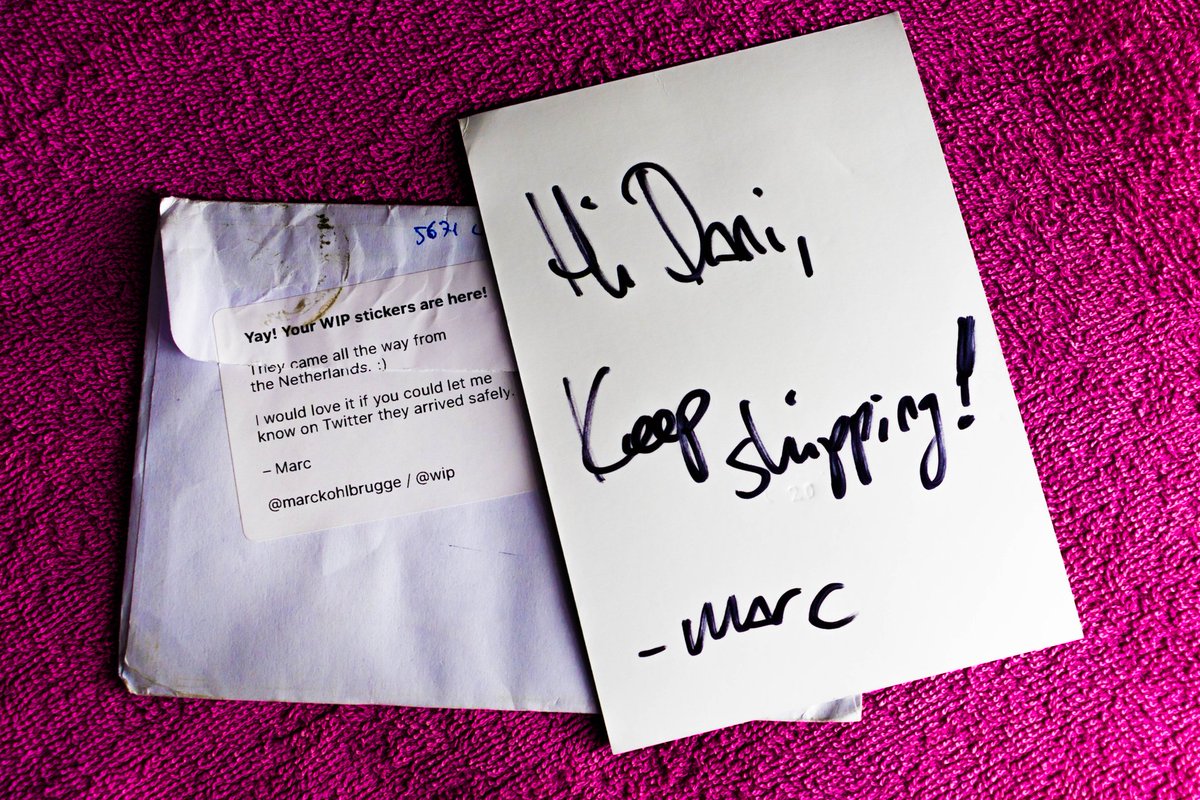 5671
Yay! Your WIP stickers are here!
They came all the way from
the Netherlands. :)
I would love it if you could let me
know on Twitter they arrived safely.
– Marc
@marckohlbrugge / @wip
Hi Dani,
Keep shipping!
20
- Marc